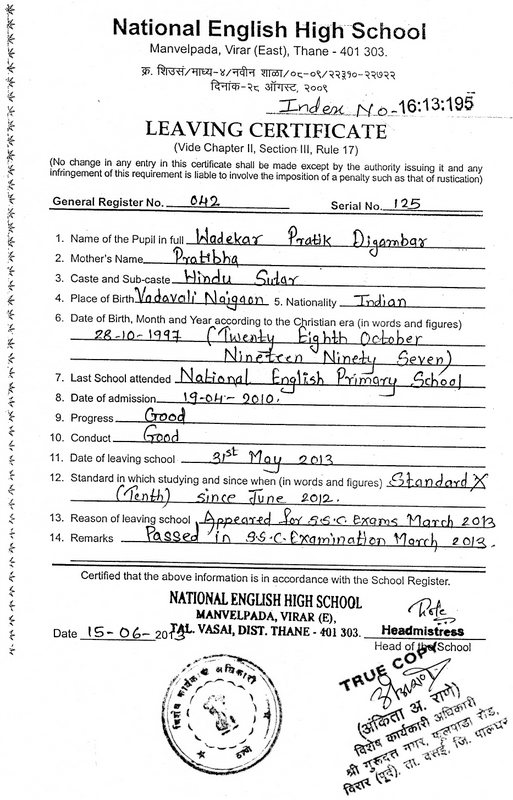 National English High School
Manvelpada, Virar (East), Thane - 401 303.
क्र. शिउसं/माध्य-४/नवीन शाळा/०८-०९/२२३१०-२२७२२
दिनांक-२८ ऑगस्ट, २००९
Index No - 16:13:195
LEAVING CERTIFICATE
(Vide Chapter II, Section III, Rule 17)
(No change in any entry in this certificate shall be made except by the authority issuing it and any
infringement of this requirement is liable to involve the imposition of a penalty such as that of rustication)
General Register No. 042 Serial No. 125
1. Name of the Pupil in full Wadekar Pratik Digambar
2. Mother's Name Pratibha
3. Caste and Sub-caste Hindu Sutar
4. Place of Birth Vadavali Naigaon 5. Nationality Indian
6. Date of Birth, Month and Year according to the Christian era (in words and figures)
28-10-1997 (Twenty Eighth October
Nineteen Ninety Seven)
7. Last School attended National English Primary School
8. Date of admission 19-04-2010.
9. Progress Good
10. Conduct Good
11. Date of leaving school 31st May 2013
12. Standard in which studying and since when (in words and figures) Standard X
(Tenth) since June 2012.
13. Reason of leaving school Appeared for S.S.C. Exams March 2013
14. Remarks Passed in S.S.C. Examination March 2013.
Certified that the above information is in accordance with the School Register.
NATIONAL ENGLISH HIGH SCHOOL
MANVELPADA, VIRAR (E),
Date 15-06-2013 TAL. VASAI, DIST. THANE - 401 303.
Headmistress
Head of the School
विशेष कार्यकारी अधिकारी
TRUE COPY
(अंकिता अ. राणे)
विशेष कार्यकारी अधिकारी
श्री गुरुदत्त नगर, फुलपाडा रोड,
विरार (पूर्व), ता. वसई, जि. पालघर